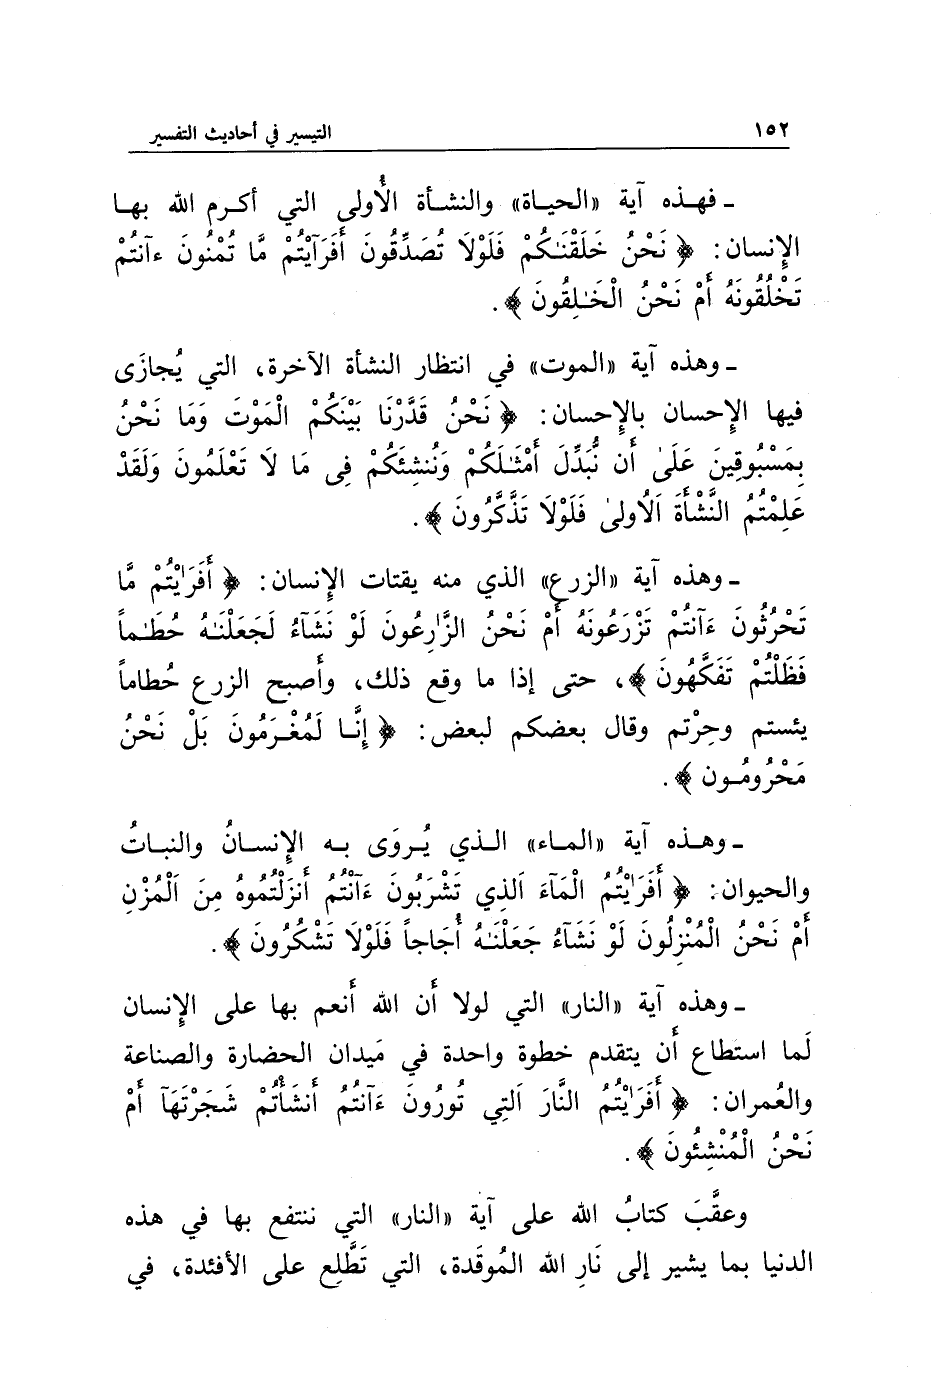 ١٥٢ التيسير في أحاديث التفسير
ـ فهـذه آية «الحيـاة» والنشـأة الأُولى التي أكـرم الله بهـا
الإِنسان: ﴿ نَحْنُ خَلَقْنَـٰكُمْ فَلَوْلَا تُصَدِّقُونَ أَفَرَآيْتُمْ مَّا تُمْنُونَ ءَآنتُمْ
تَخْلُقُونَهُ أَمْ نَحْنُ الْخَـٰلِقُونَ ﴾.
ـ وهذه آية «الموت» في انتظار النشأة الآخرة، التي يُجازَى
فيها الإِحسان بالإِحسان: ﴿ نَحْنُ قَدَّرْنَا بَيْنَكُمْ الْمَوْتَ وَمَا نَحْنُ
بِمَسْبُوقِينَ عَلَىٰ أَن نُّبَدِّلَ أَمْثَـٰلَكُمْ وَنُنشِئَكُمْ فِى مَا لَا تَعْلَمُونَ وَلَقَدْ
عَلِمْتُمُ النَّشْأَةَ اَلُاولىٰ فَلَوْلَا تَذَّكَّرُونَ ﴾.
ـ وهذه آية «الزرع» الذي منه يقتات الإِنسان: ﴿ أَفَرَاٰيْتُمْ مَّا
تَحْرُثُونَ ءَآنتُمْ تَزْرَعُونَهُ أَمْ نَحْنُ الزَّارِعُونَ لَوْ نَشَآءُ لَجَعَلْنَـٰهُ حُطَـٰماً
فَظَلْتُمْ تَفَكَّهُونَ ﴾، حتى إذا ما وقع ذلك، وأَصبح الزرع حُطاماً
يئستم وحِرْتم وقال بعضكم لبعض: ﴿ إِنَّـا لَمُغْـرَمُونَ بَلْ نَحْنُ
مَحْرُومُـون ﴾.
ـ وهـذه آية «المـاء» الـذي يُـروَى بـه الإِنسـانُ والنباتُ
والحيوان: ﴿ أَفَرَاٰيْتُمُ الْمَآءَ اَلذِي تَشْرَبُونَ ءَآنْتُمُ أَنزَلْتُمُوهُ مِنَ اَلْمُزْنِ
أَمْ نَحْنُ الْمُنْزِلُونَ لَوْ نَشَآءُ جَعَلْنَـٰهُ أُجَاجاً فَلَوْلَا تَشْكُرُونَ ﴾.
ـ وهذه آية «النار» التي لولا أَن الله أَنعم بها على الإِنسان
لَما استطاع أَن يتقدم خطوة واحدة في مَيدان الحضارة والصناعة
والعُمران: ﴿ أَفَرَاٰيْتُمُ النَّارَ اَلتِي تُورُونَ ءَآنتُمُ أَنشَأْتُمْ شَجَرْتَهَآ أَمْ
نَحْنُ الْمُنْشِئُونَ ﴾.
وعقَّبَ كتابُ الله على آية «النار» التي ننتفع بها في هذه
الدنيا بما يشير إلى نَارِ الله المُوقَدة، التي تَطَّلِع على الأفئدة، في